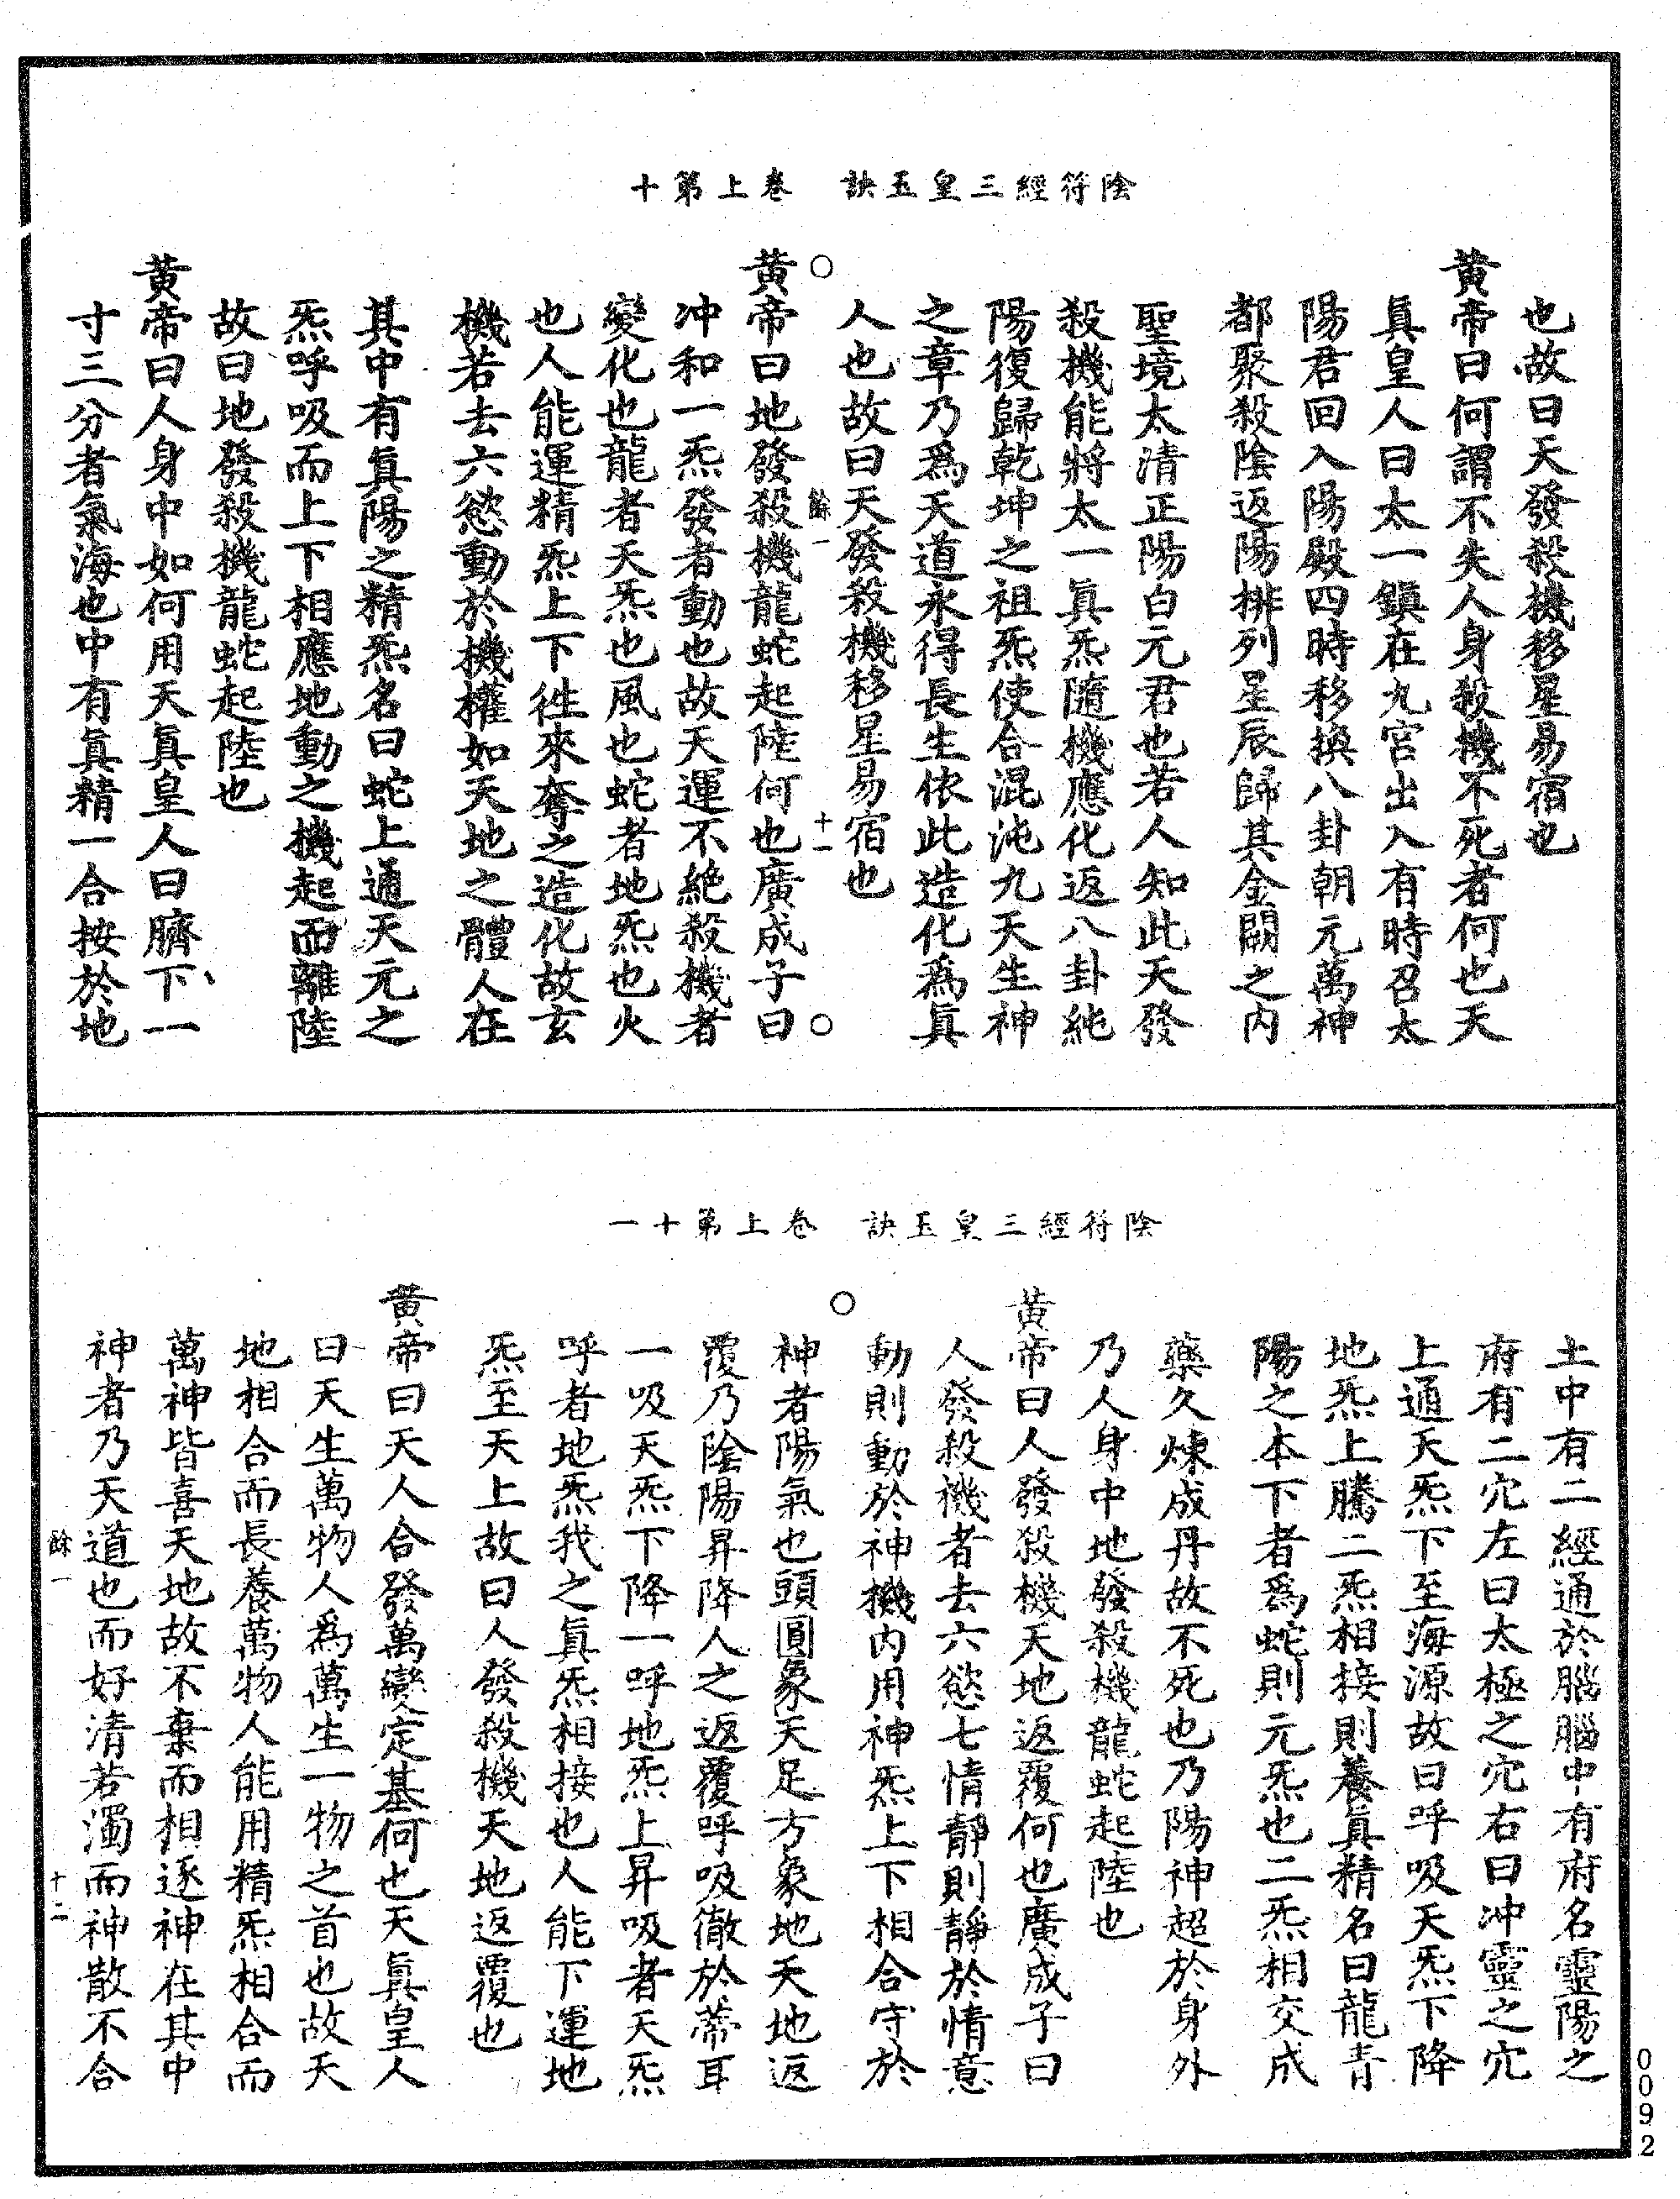 陰符經三皇玉訣　卷上第十
也故曰天發殺機移星易宿也
黃帝曰何謂不失人身殺機不死者何也天
真皇人曰太一鎮在九宮出入有時召太
陽君回入陽殿四時移換八卦朝元萬神
都聚殺陰返陽排列星辰歸其金闕之內
聖境太清正陽白元君也若人知此天發
殺機能將太一真炁隨機應化返八卦純
陽復歸乾坤之祖炁使合混沌九天生神
之章乃為天道永得長生依此造化為真
人也故曰天發殺機移星易宿也
餘一　十一
黃帝曰地發殺機龍蛇起陸何也廣成子曰
冲和一炁發者動也故天運不絕殺機者
變化也龍者天炁也風也蛇者地炁也火
也人能運精炁上下往來奪之造化故玄
機若去六慾動於機權如天地之體人在
其中有真陽之精炁名曰蛇上通天元之
炁呼吸而上下相應地動之機起而離陸
故曰地發殺機龍蛇起陸也
黃帝曰人身中如何用天真皇人曰臍下一
寸三分者氣海也中有真精一合按於地
陰符經三皇玉訣　卷上第十一
土中有二經通於腦腦中有府名靈陽之
府有二穴左曰太極之穴右曰冲靈之穴
上通天炁下至海源故曰呼吸天炁下降
地炁上騰二炁相接則養真精名曰龍青
陽之本下者為蛇則元炁也二炁相交成
藥久煉成丹故不死也乃陽神超於身外
乃人身中地發殺機龍蛇起陸也
黃帝曰人發殺機天地返覆何也廣成子曰
人發殺機者去六慾七情靜則靜於情意
動則動於神機內用神炁上下相合守於
神者陽氣也頭圓象天足方象地天地返
覆乃陰陽昇降人之返覆呼吸徹於蒂耳
一吸天炁下降一呼地炁上昇吸者天炁
呼者地炁我之真炁相接也人能下運地
炁至天上故曰人發殺機天地返覆也
黃帝曰天人合發萬變定基何也天真皇人
曰天生萬物人為萬生一物之首也故天
地相合而長養萬物人能用精炁相合而
萬神皆喜天地故不棄而相逐神在其中
神者乃天道也而好清若濁而神散不合
餘一　十二
0092